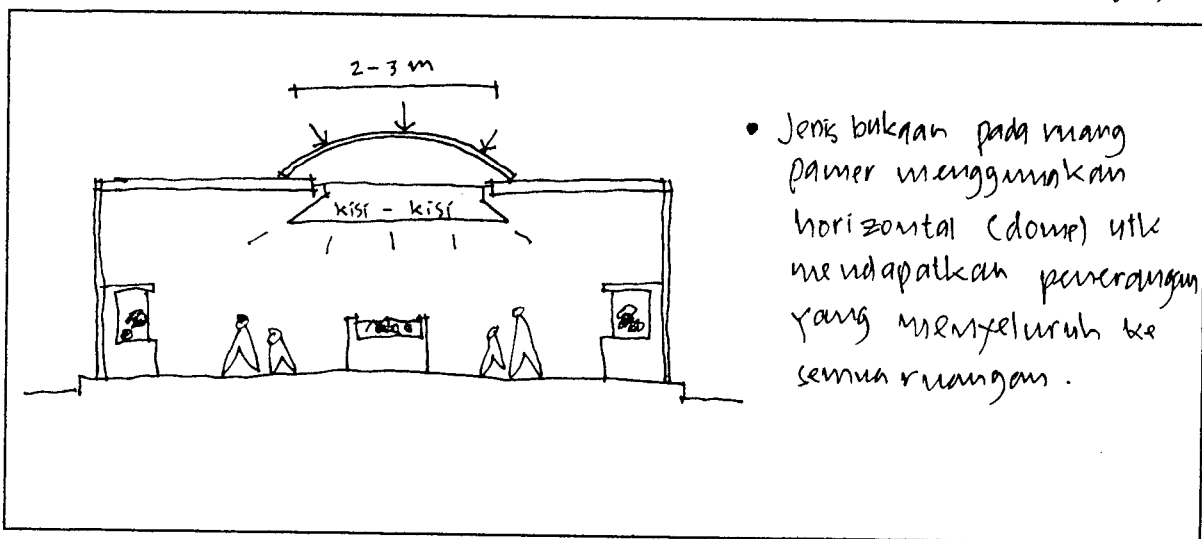 2-3 m
kisi - kisi
• Jenis bukaan pada ruang
pamer menggunakan
horizontal (dome) utk
mendapatkan penerangan
yang menyeluruh ke
semua ruangan.